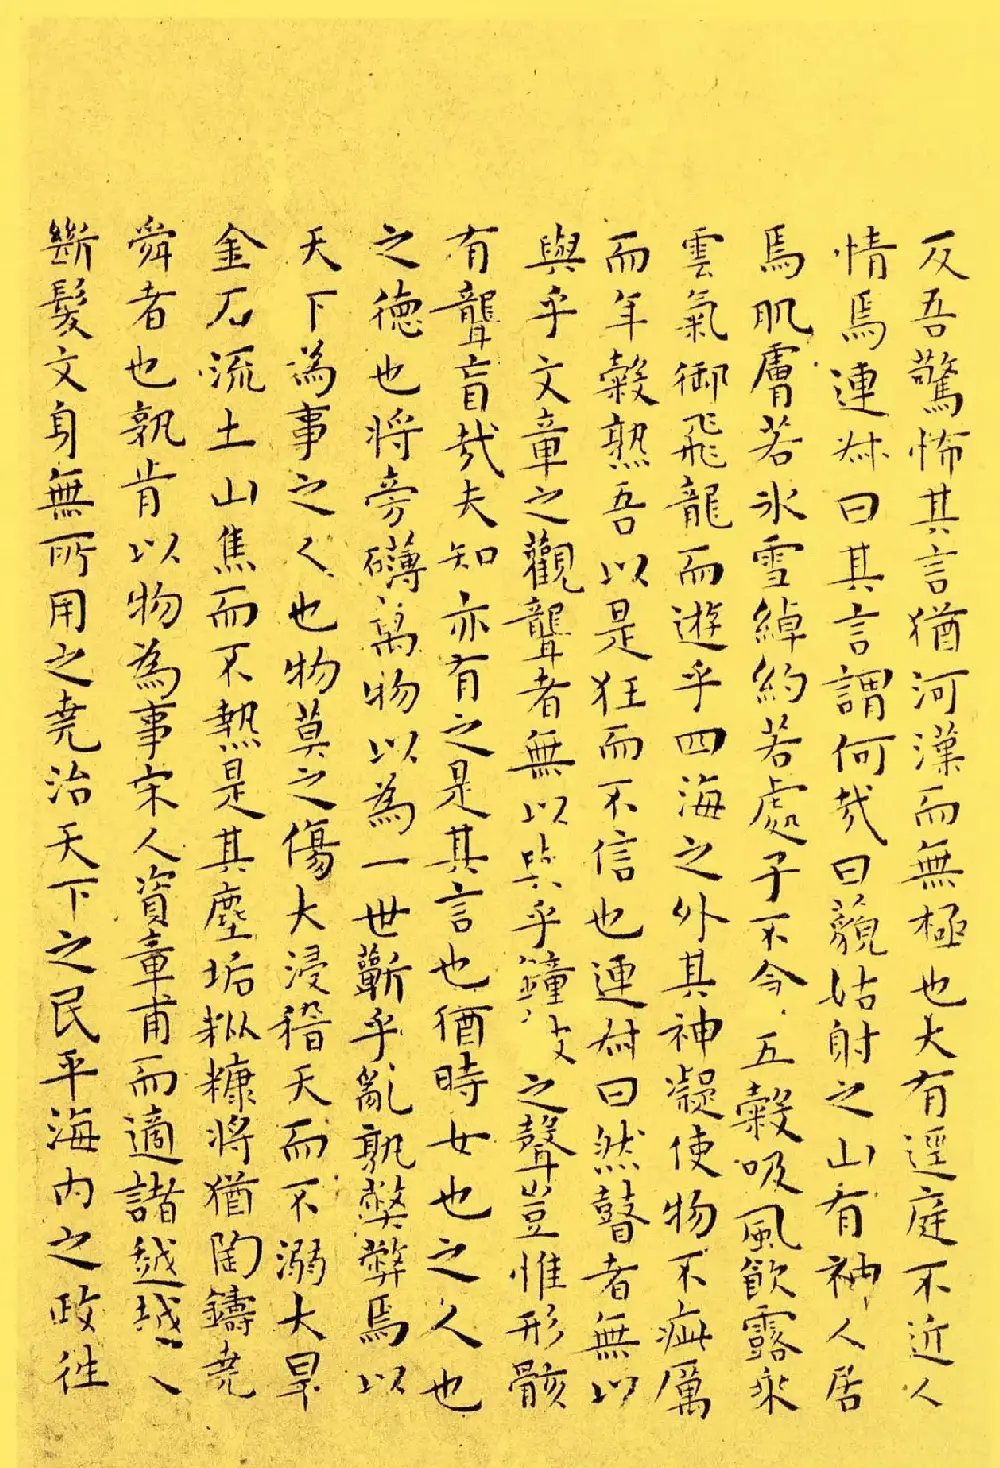 反吾驚怖其言猶河漢而無極也大有逕庭不近人
情焉連叔曰其言謂何哉曰藐姑射之山有神人居
焉肌膚若冰雪綽約若處子不食五穀吸風飲露乘
雲氣御飛龍而遊乎四海之外其神凝使物不疵厲
而年穀熟吾以是狂而不信也連叔曰然瞽者無以
與乎文章之觀聾者無以與乎鐘鼓之聲豈惟形骸
有聾盲哉夫知亦有之是其言也猶時女也之人也
之德也將旁礴萬物以為一世蘄乎亂孰弊弊焉以
天下為事之人也物莫之傷大浸稽天而不溺大旱
金石流土山焦而不熱是其塵垢粃糠將猶陶鑄堯
舜者也孰肯以物為事宋人資章甫而適諸越越〻
斷髮文身無所用之堯治天下之民平海內之政往